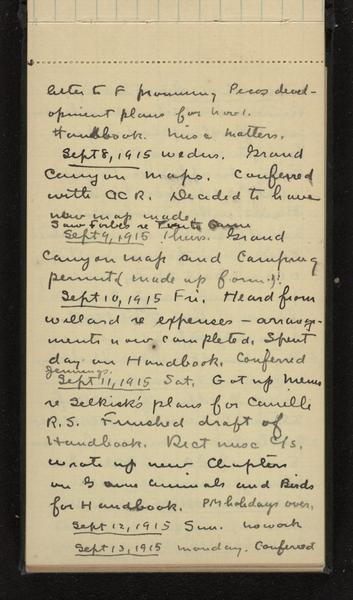 letter to F promising Pecos devel-
opment plans for Nov 1.
Handbook. Misc matters.
Sept 8, 1915 Wedns. Grand
Canyon maps. Conferred
with ACR. Decided to have
new map made.
Saw Forbes re
Sept 9, 1915 Thurs. Grand
Canyon map and Camping
permit (made up form).
Sept 10, 1915 Fri. Heard from
Willard re expenses - arrange-
ments now completed. Spent
day on Handbook. Conferred
Jennings.
Sept 11, 1915 Sat. Got up memo
re Selkirk's plans for Camille
R.S. Finished draft of
Handbook. Dict misc C/s.
Wrote up new Chapters
on Game animals and Birds
for Handbook. PM holidays over.
Sept 12, 1915 Sun. No work
Sept 13, 1915 Monday. Conferred